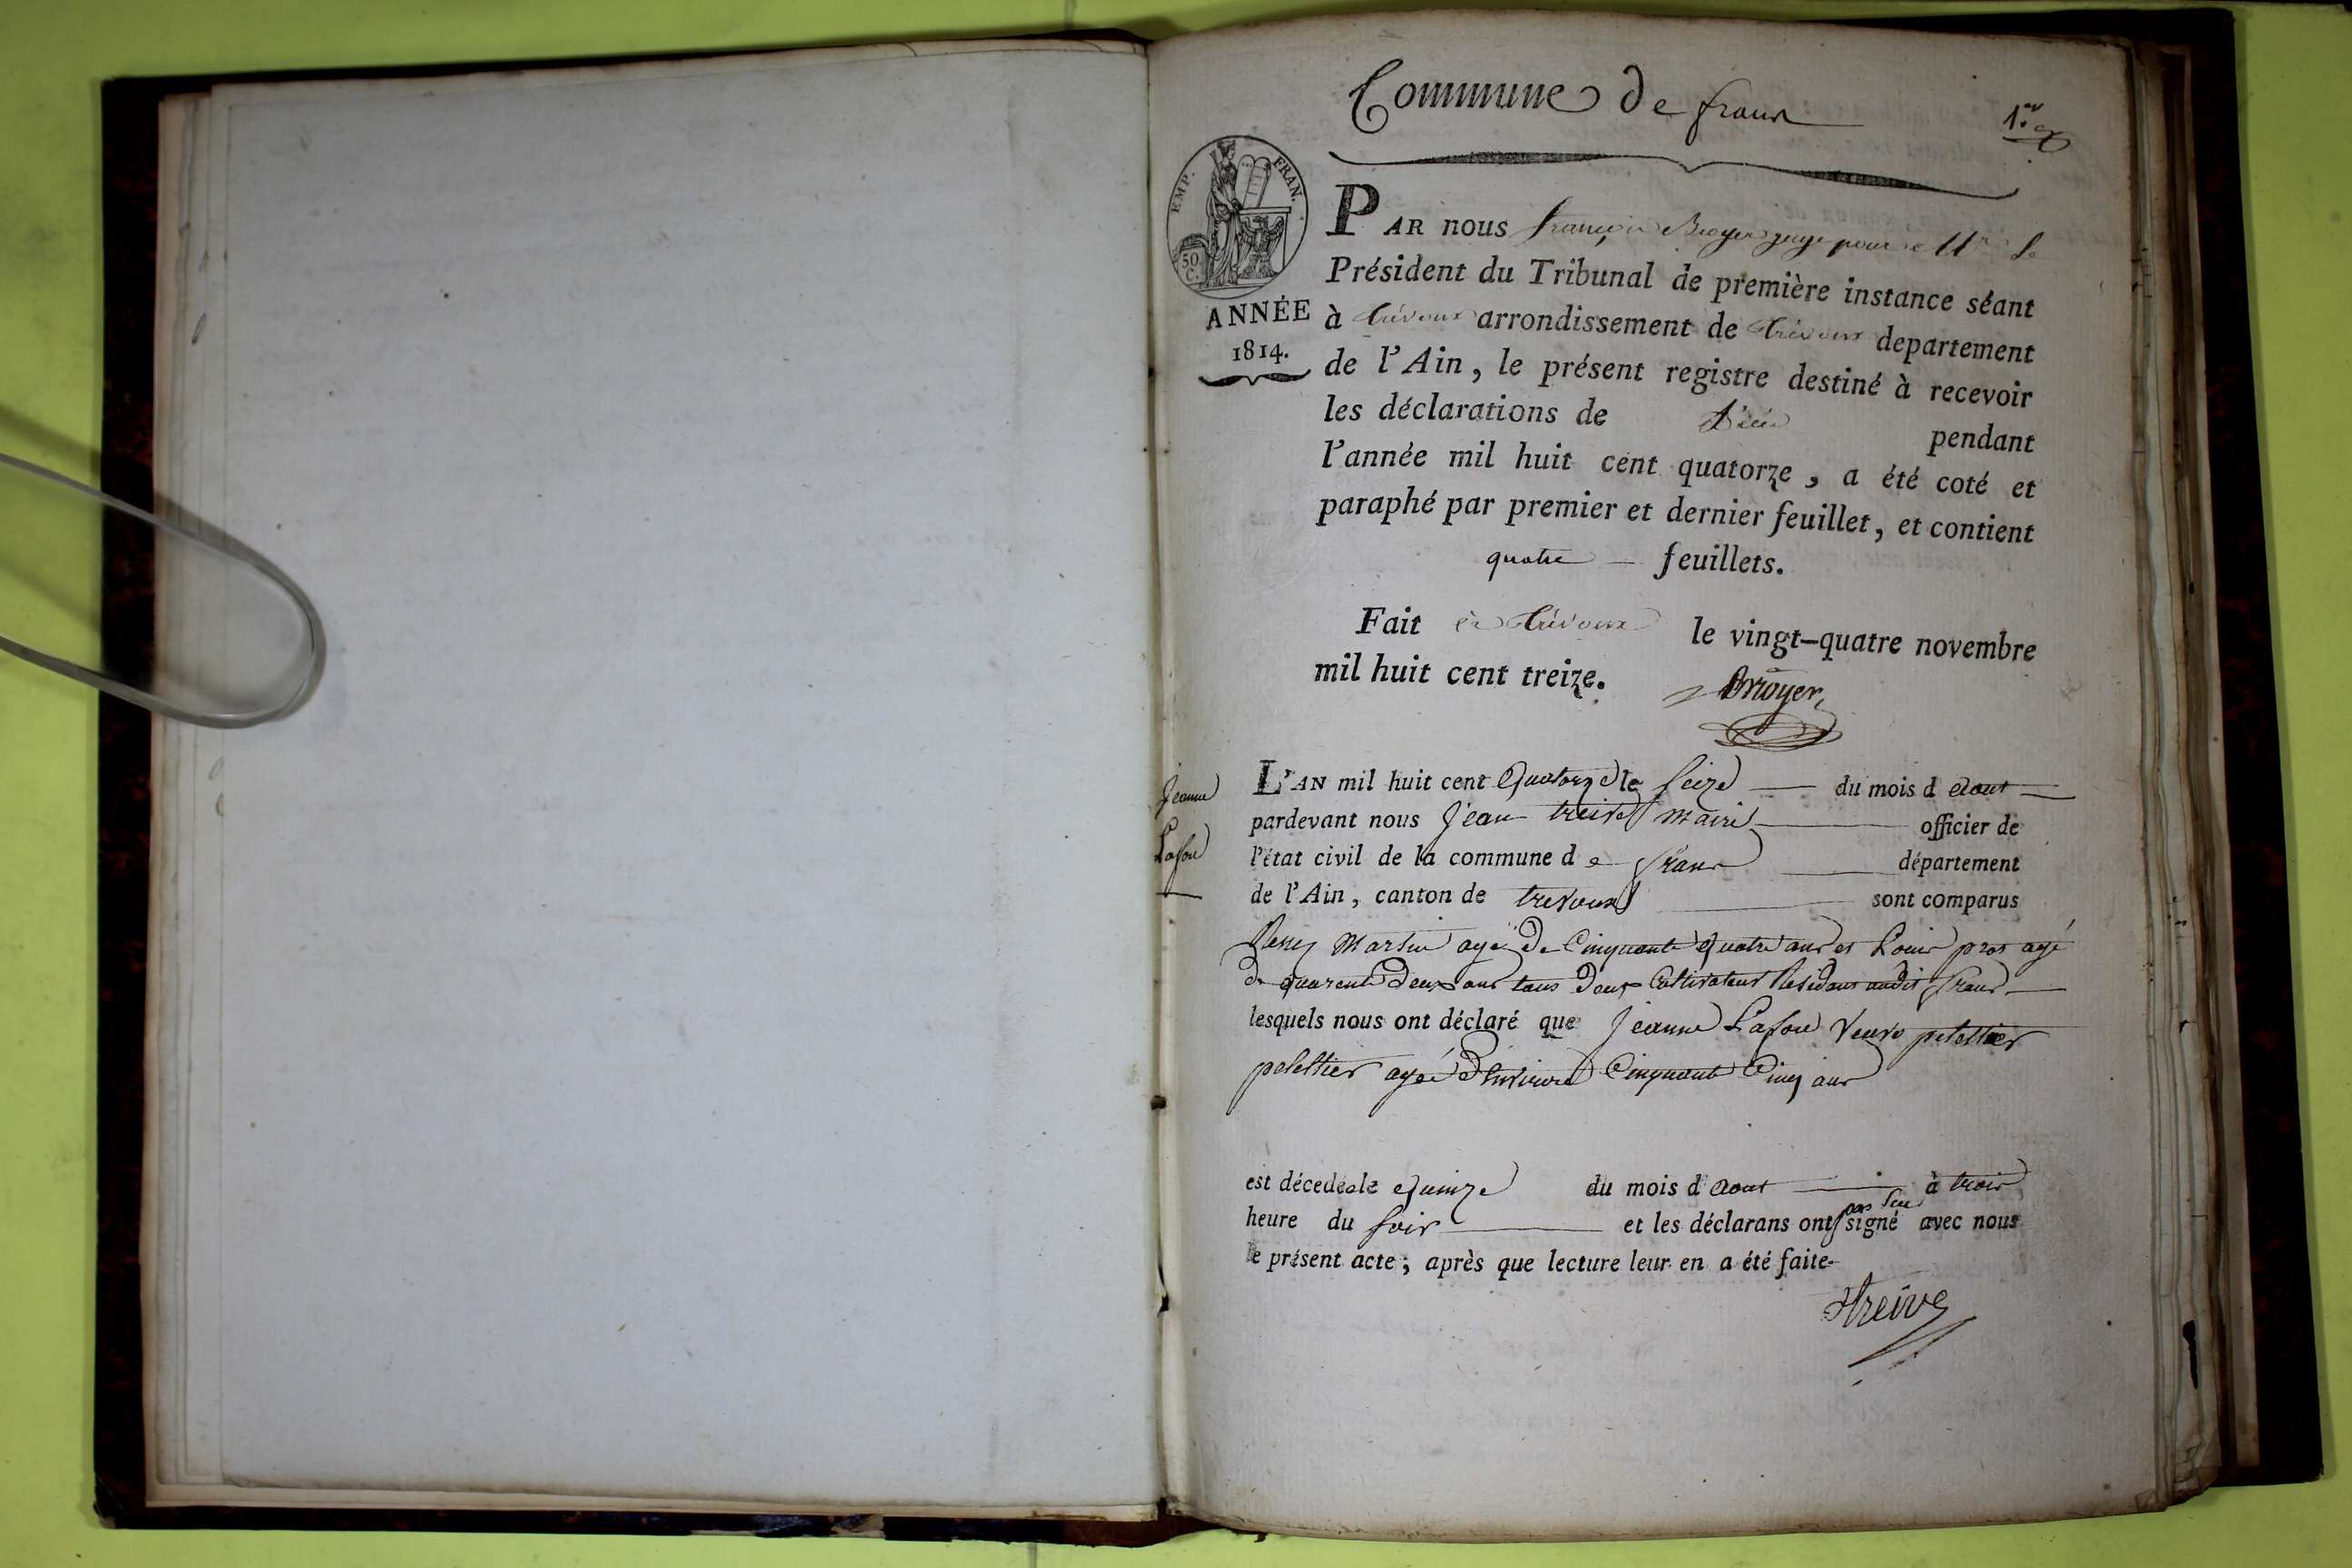 Commune de frans
1.er
EMP. FRAN.
50 C.
ANNÉE
1814.
PAR nous françois Broyer juge pour Mr le
Président du Tribunal de première instance séant
à trévoux arrondissement de trévoux departement
de l'Ain, le présent registre destiné à recevoir
les déclarations de Décès pendant
l'année mil huit cent quatorze, a été coté et
paraphé par premier et dernier feuillet, et contient
quatre feuillets.
Fait à trévoux le vingt-quatre novembre
mil huit cent treize.
Broyer
Jeanne
Lafon
L'AN mil huit cent Quatorze le Seize du mois d aout
pardevant nous Jean treive maire officier de
l'état civil de la commune de frans département
de l'Ain, canton de trevoux sont comparus
Martin agé de Cinquante Quatre ans et Louis pros agé
de quarente deux ans tous deux Cultivateurs Residans audit frans
lesquels nous ont déclaré que Jeanne Lafon veuve peletier
peletier agée d'Environ Cinquante Cinq ans
est décedée le Quinze du mois d aout à trois
heure du soir et les déclarans ont pas seu signé avec nous
le présent acte; après que lecture leur en a été faite
treive